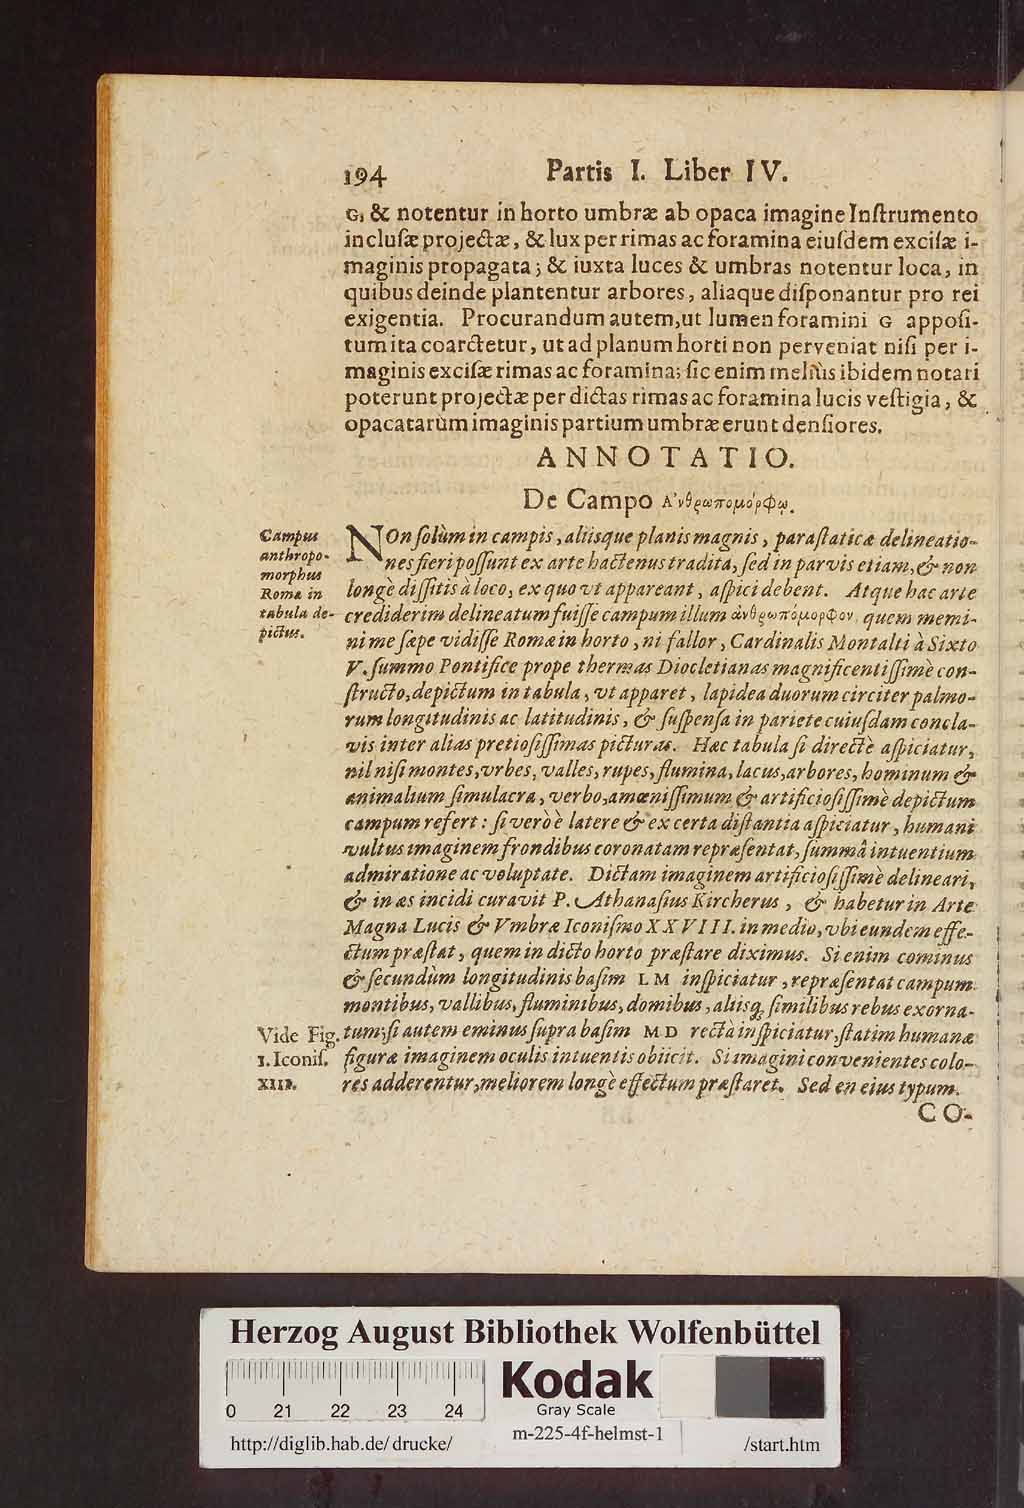 194 Partis I. Liber IV.
G, & notentur in horto umbræ ab opaca imagine Inſtrumento
incluſæ projectæ, & lux per rimas ac foramina eiuſdem exciſæ i-
maginis propagata; & iuxta luces & umbras notentur loca, in
quibus deinde plantentur arbores, aliaque diſponantur pro rei
exigentia. Procurandum autem, ut lumen foramini G appoſi-
tum ita coarctetur, ut ad planum horti non perveniat niſi per i-
maginis exciſæ rimas ac foramina; ſic enim meliùs ibidem notari
poterunt projectæ per dictas rimas ac foramina lucis veſtigia, &
opacatarùm imaginis partium umbræ erunt denſiores.
ANNOTATIO.
De Campo Ἀνθρωπομόρφῳ.
Campus
anthropo-
morphus
Romæ in
tabula de-
pictus.
NOn ſolùm in campis, aliisque planis magnis, paraſtaticæ delineatio-
nes fieri poſſunt ex arte hactenus tradita, ſed in parvis etiam, & non
longè diſſitis à loco, ex quo vt appareant, aſpici debent. Atque hac arte
crediderim delineatum fuiſſe campum illum ἀνθρωπόμορφον, quem memi-
ni me ſæpe vidiſſe Romæ in horto, ni fallor, Cardinalis Montalti à Sixto
V. ſummo Pontifice prope thermas Diocletianas magnificentiſſimè con-
ſtructo, depictum in tabula, vt apparet, lapidea duorum circiter palmo-
rum longitudinis ac latitudinis, & ſuſpenſa in pariete cuiuſdam concla-
vis inter alias pretioſiſſimas picturas. Hæc tabula ſi directè aſpiciatur,
nil niſi montes, vrbes, valles, rupes, flumina, lacus, arbores, hominum &
animalium ſimulacra, verbo, amœniſſimum & artificioſiſſimè depictum
campum refert: ſi verò è latere & ex certa diſtantia aſpiciatur, humani
vultus imaginem frondibus coronatam repræſentat, ſummâ intuentium
admiratione ac voluptate. Dictam imaginem artificioſiſſimè delineari,
& in æs incidi curavit P. Athanaſius Kircherus, & habetur in Arte
Magna Lucis & Vmbræ Iconiſmo XXVIII. in medio, vbi eundem effe-
ctum præſtat, quem in dicto horto præſtare diximus. Si enim cominus
& ſecundùm longitudinis baſim LM inſpiciatur, repræſentat campum
montibus, vallibus, fluminibus, domibus, aliisq; ſimilibus rebus exorna-
tum; ſi autem eminus ſupra baſim MD rectà inſpiciatur, ſtatim humanæ
figuræ imaginem oculis intuentis obiicit. Si imagini convenientes colo-
res adderentur, meliorem longè effectum præſtaret. Sed en eius typum.
Vide Fig.
1. Iconiſ.
XIII.
CO-
Herzog August Bibliothek Wolfenbüttel
0 21 22 23 24
Kodak
Gray Scale
http://diglib.hab.de/drucke/ m-225-4f-helmst-1 /start.htm